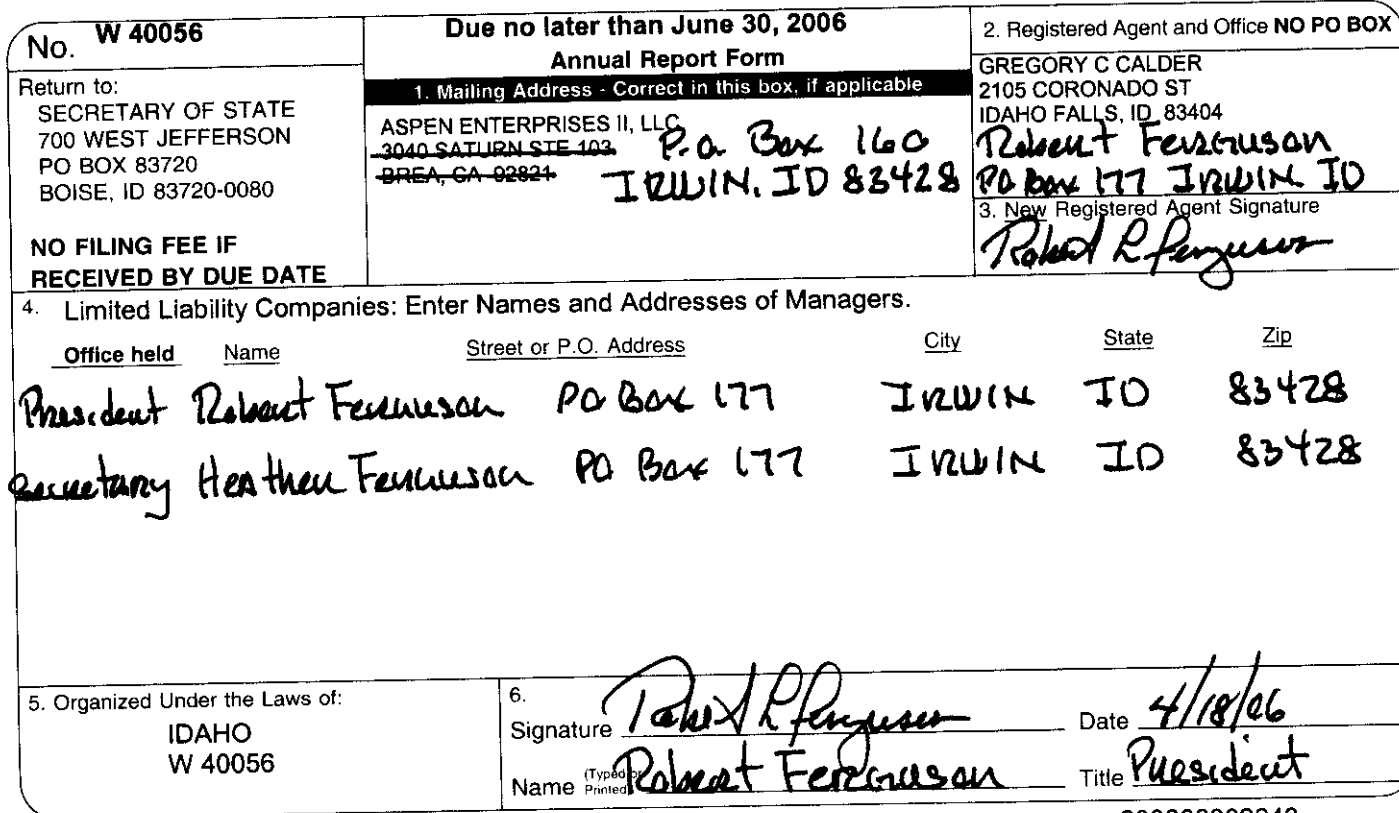 No. W 40056
Return to:
SECRETARY OF STATE
700 WEST JEFFERSON
PO BOX 83720
BOISE, ID 83720-0080
NO FILING FEE IF
RECEIVED BY DUE DATE
Due no later than June 30, 2006
Annual Report Form
1. Mailing Address - Correct in this box, if applicable
ASPEN ENTERPRISES II, LLC
3040 SATURN STE 103
BREA, CA 92821
P.O. Box 160
IRWIN, ID 83428
2. Registered Agent and Office NO PO BOX
GREGORY C CALDER
2105 CORONADO ST
IDAHO FALLS, ID 83404
Robert Ferguson
PO Box 177 IRWIN ID
3. New Registered Agent Signature
Robert L Ferguson
4. Limited Liability Companies: Enter Names and Addresses of Managers.
Office held Name Street or P.O. Address City State Zip
President Robert Ferguson PO Box 177 IRWIN ID 83428
Secretary Heather Ferguson PO Box 177 IRWIN ID 83428
5. Organized Under the Laws of:
IDAHO
W 40056
6.
Signature Robert L Ferguson Date 4/18/06
Name (Typed or Printed) Robert Ferguson Title President